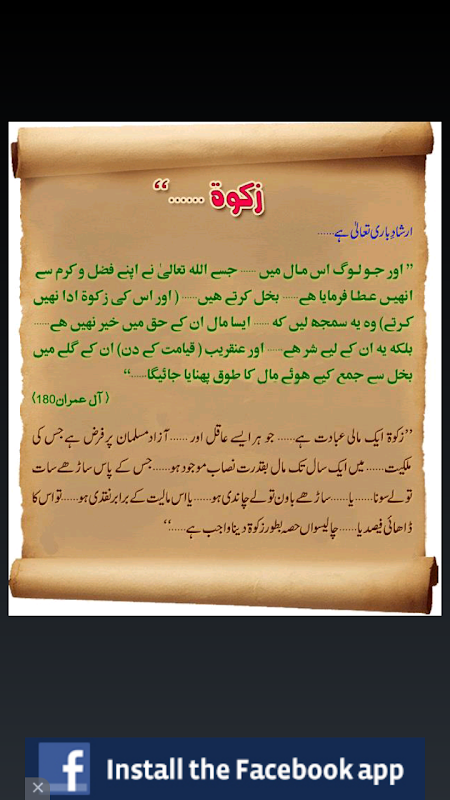 زکوة ......“
ارشادِ باری تعالیٰ ہے......
” اور جو لوگ اس مال میں ...... جسے الله تعالیٰ نے اپنے فضل و کرم سے
انھیں عطا فرمایا هے...... بخل کرتے هیں...... ( اور اس کی زکوة ادا نھیں
کرتے) وه یه سمجھ لیں که ...... ایسا مال ان کے حق میں خیر نھیں هے......
بلکه یه ان کے لیے شر هے...... اور عنقریب ( قیامت کے دن) ان کے گلے میں
بخل سے جمع کیے هوئے مال کا طوق پھنایا جائیگا......“
(آل عمران180)
”زکوۃ ایک مالی عبادت ہے...... جو ہر ایسے عاقل اور ...... آزاد مسلمان پر فرض ہے جس کی
ملکیت...... میں ایک سال تک مال بقدرت نصاب موجود ہو...... جس کے پاس ساڑھے سات
تولے سونا...... یا...... ساڑھے باون تولے چاندی ہو...... یا اس مالیت کے برابر نقدی ہو...... تو اس کا
ڈھائی فیصد یا...... چالیسواں حصہ بطور زکوۃ دینا واجب ہے......“
Install the Facebook app